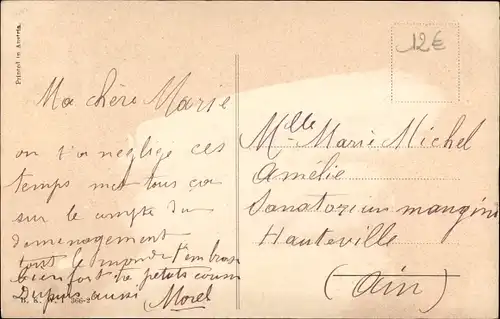 Printed in Austria.
12€
Ma chère Marie
on t'a négligé ces
temps met tous ça
sur le compte du
demenagement
tout le monde t'embrasse
bien fort te petits cousin
Depuis aussi Morel
B. K. W. I 366-2
Mlle Marie Michel
Amélie
Sanatorium mangini
Hauteville
(Ain)